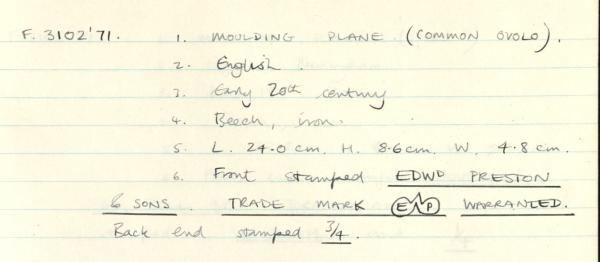 F. 3102'71. 1. MOULDING PLANE (COMMON OVOLO).
2. English.
3. Early 20th century
4. Beech, iron.
5. L. 24.0 cm. H. 8.6 cm. W. 4.8 cm.
6. Front stamped EDWD PRESTON
& SONS. TRADE MARK E P WARRANTED.
Back end stamped 3/4.